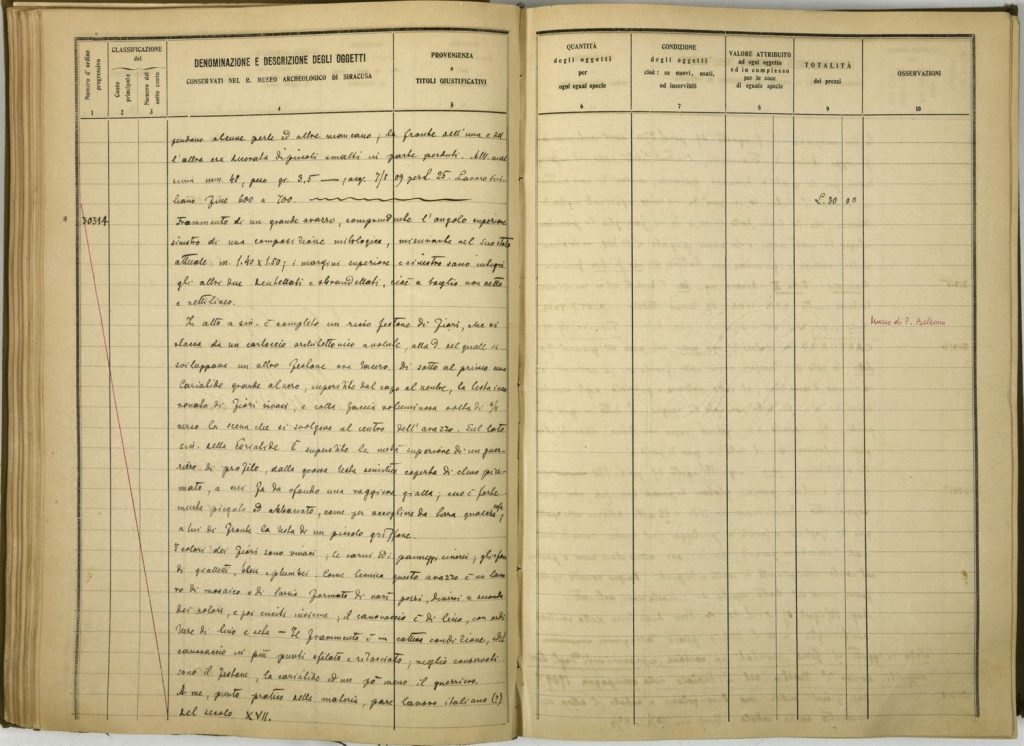 Numero d'ordine progressivo
CLASSIFICAZIONE del
Conto principale
Numero del sotto conto
DENOMINAZIONE E DESCRIZIONE DEGLI OGGETTI
CONSERVATI NEL R. MUSEO ARCHEOLOGICO DI SIRACUSA
PROVENIENZA
e
TITOLI GIUSTIFICATIVI
1 2 3 4 5
pendono alcune perle ed altre mancano; la fronte dell'una e del
l'altra era decorata di piccoli smalti in parte perduti.
mm. 48, peso gr. 3,5 —; acq. 7/8 09 per L. 25. Lavoro sici-
liano fine 600 a 700.
30314
Frammento di un grande arazzo, comprendente l'angolo superiore
sinistro di una composizione mitologica, misurante nel suo stato
attuale m. 1.40 x 1.50; i margini superiore e sinistro sono integri
gli altri due dentellati e sbrandellati, cioè a taglio non netto
e rettilineo.
In alto a sin. è completo un ricco festone di fiori, che si
stacca da un cartoccio architettonico a volute, alla d. del quale si
sviluppava un altro festone ora lacero. Di sotto al primo una
Cariatide grande al vero, superstite dal capo al ventre, la testa inco
ronata di fiori vivaci, e colla faccia voluminosa volta di 3/4
verso la scena che si svolgeva al centro dell'arazzo. Sul lato
sin. della Cariatide è superstite la metà superiore di un guer-
riero di profilo, dalla grossa testa coperta di elmo piu-
mato, a cui fa da sfondo una raggiera gialla; esso è forte-
mente piegato ed abbassato, come per accogliere da terra qualche cosa;
a lui di fronte la testa di un piccolo griffone.
I colori dei fiori sono vivaci; le carni ed i panneggi cinerei; gli sfon
di gialletti, bleu e plumbei. Come tecnica questo arazzo è un lavo
ro di mosaico e di tarsia formato di vari pezzi, diversi a seconda
dei colori, e poi cuciti insieme; il canovaccio è di lino, con ordi
ture di lino e seta — Il frammento è in cattiva condizione, del
canovaccio in più punti sfilato e rilasciato; meglio conservati
sono il festone, la cariatide ed un pò meno il guerriero.
A me, punto pratico della materia, pare lavoro italiano (?)
del secolo XVII.
QUANTITÀ
degli oggetti
per
ogni egual specie
CONDIZIONE
degli oggetti
cioè: se nuovi, usati,
od inservibili
VALORE ATTRIBUITO
ad ogni oggetto
ed in complesso
per le cose
di eguale specie
TOTALITÀ
dei prezzi
OSSERVAZIONI
6 7 8 9 10
L. 30 00
Museo di P. Bellomo